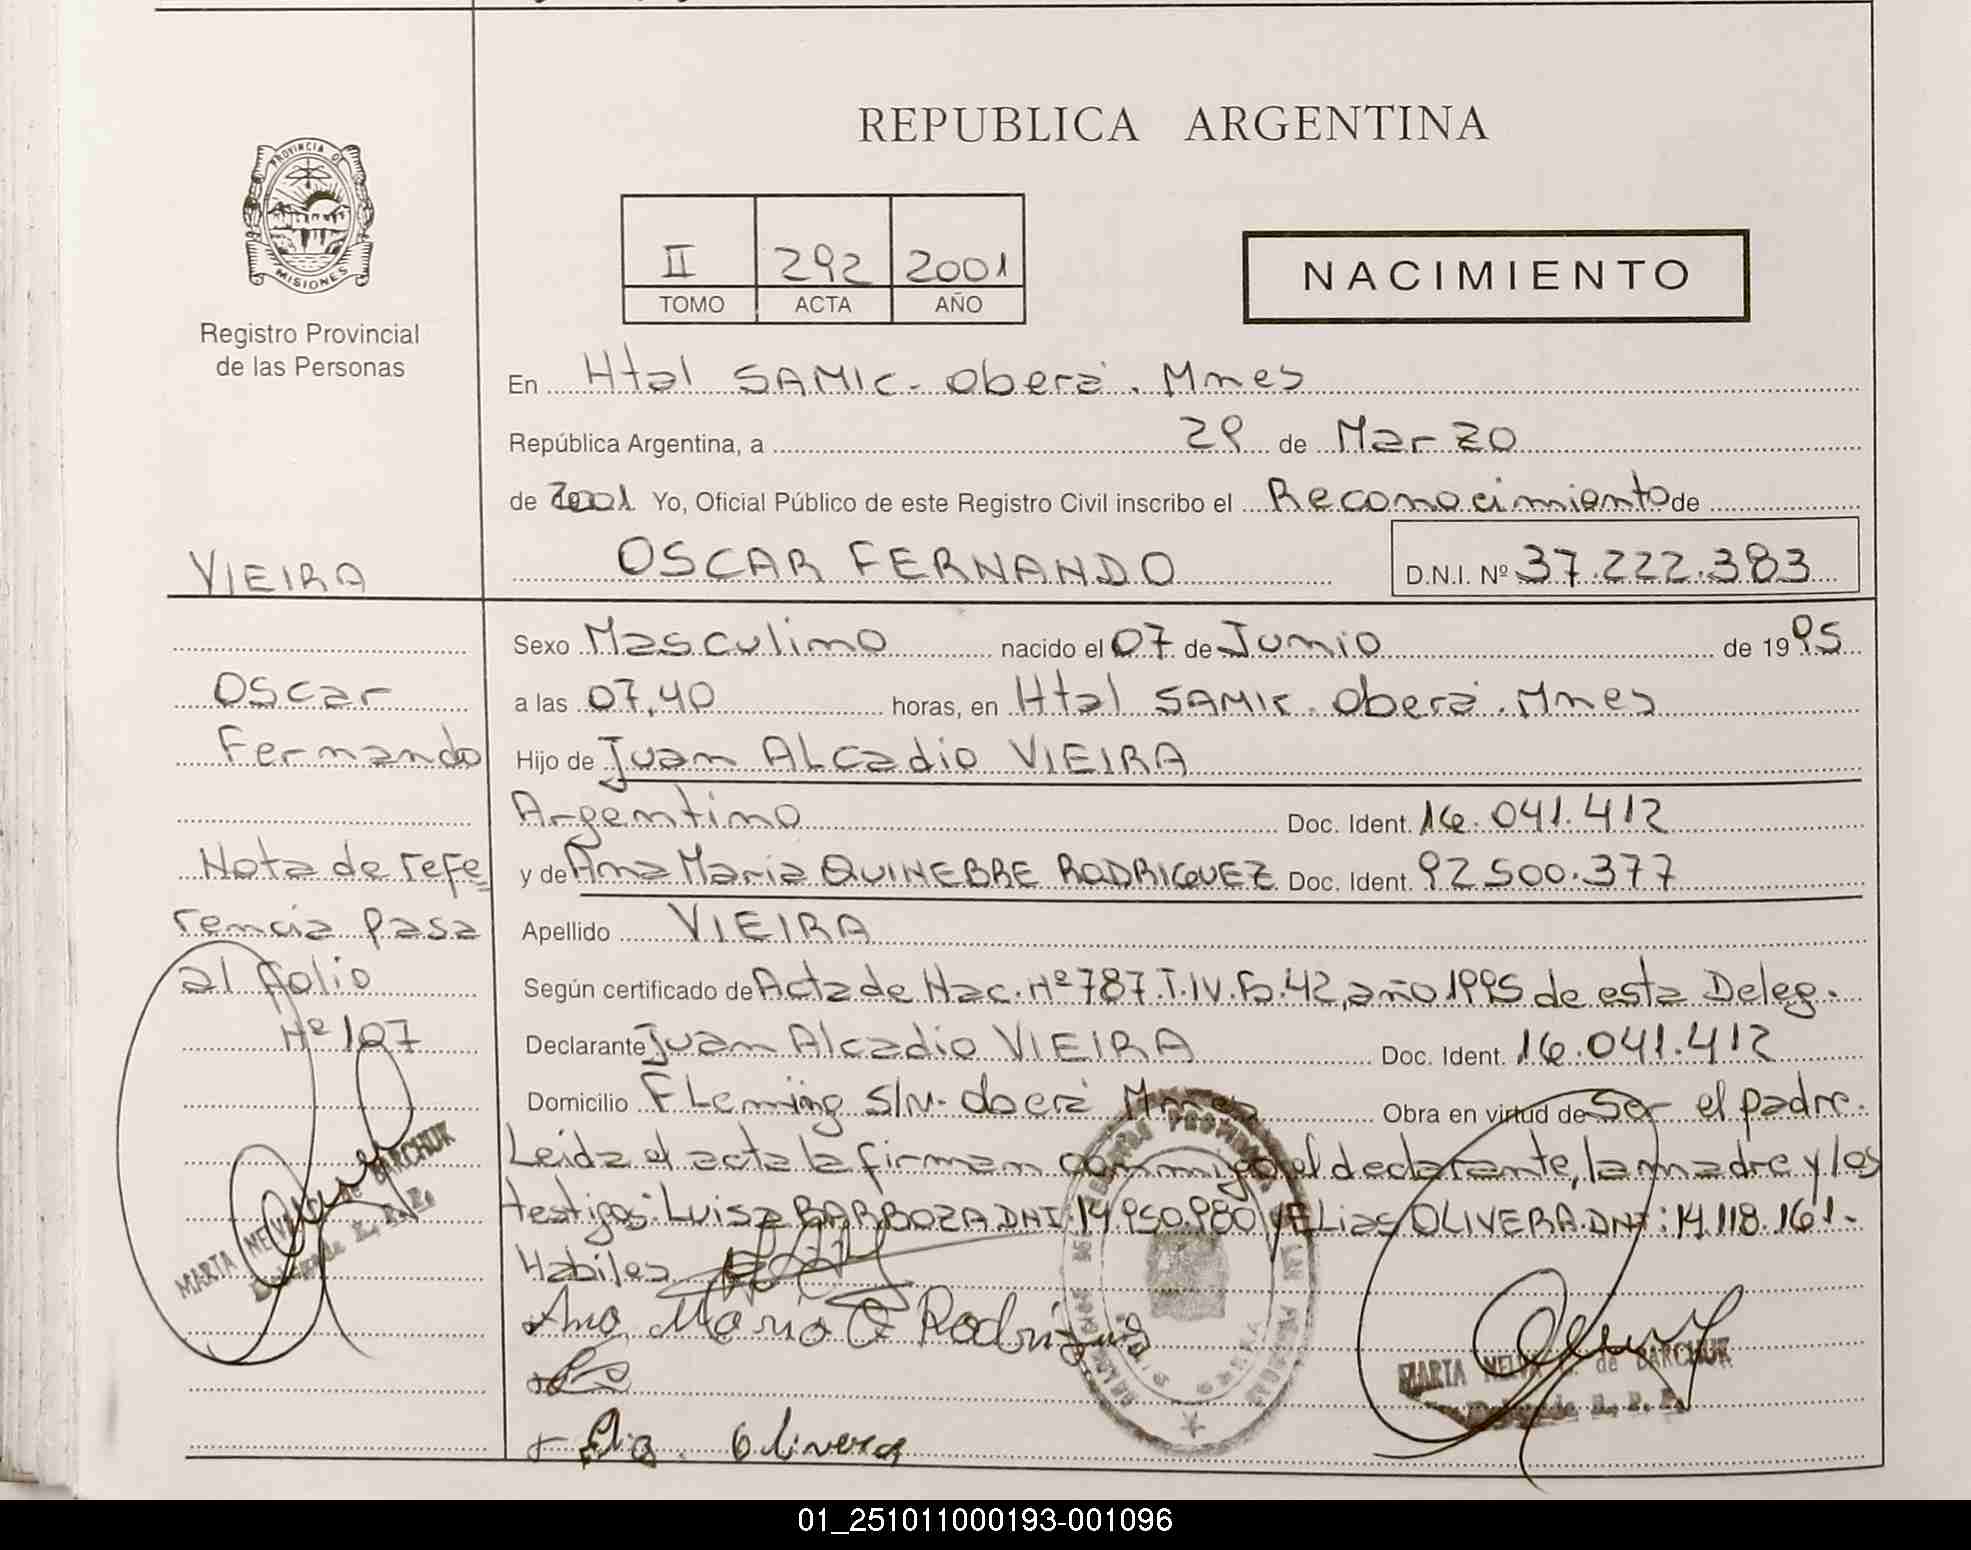 REPUBLICA ARGENTINA
PROVINCIA DE
MISIONES
Registro Provincial
de las Personas
II 292 2001
TOMO ACTA AÑO
NACIMIENTO
En Htal SAMIC. Oberá. Mnes
República Argentina, a 29 de Marzo
de 2001 Yo, Oficial Público de este Registro Civil inscribo el Reconocimiento de
OSCAR FERNANDO D.N.I. Nº 37.222.383
VIEIRA
Oscar
Fernando
Nota de refe=
rencia pasa
al folio
Nº 107
MARTA NELV de BARCHUK
Sexo Masculino nacido el 07 de Junio de 1995
a las 07,40 horas, en Htal SAMIC. Oberá. Mnes
Hijo de Juan ALCadio VIEIRA
Argentino Doc. Ident. 16.041.412
y de Ana Maria QUINEBRE RODRIGUEZ Doc. Ident. 92.500.377
Apellido VIEIRA
Según certificado de Acta de Nac. Nº 787.T.IV.Fo.42, año 1995 de esta Deleg.
Declarante Juan Alcadio VIEIRA Doc. Ident. 16.041.412
Domicilio FLeming S/N. Oberá Mnes Obra en virtud de Ser el padre.
Leida el acta la firman conmigo el declarante, la madre y los
testigos: Luisa BARBOZA DNI: 14.950.980 y ELias OLIVERA. DNI: 14.118.161-
Habiles
Ana Maria Q Rodriguez
Olivera
MARTA NELV de BARCHUK
Delegada R. P. P.
01_251011000193-001096